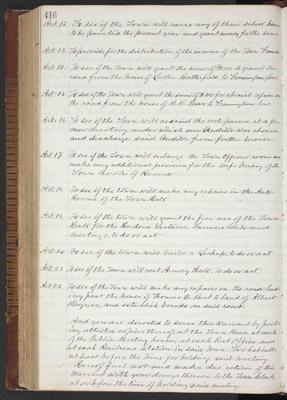 416
Art. 12. To see if the Town will cause any of their school houses
to be painted the present year and grant money for the same
Art. 13. To provide for the distribution of the income of the Town Fund.
Art. 14. To see if the Town will grant the sum of to gravel the
road from the house of Luther Butterfield to Framingham line
Art. 15. To see if the Town will grant the sum of for special repairs on
the road from the house of to Framingham line
Art. 16. To see if the Town will rescind the vote passed at a for
mer meeting under which an Auditor was chosen
and discharge said Auditor from further service
Art. 17. To see if the Town will enlarge the Town Officers' room or
make any additional provision for the safe keeping of the
Town Books of Record
Art. 18. To see if the town will make any repairs in the Ante
Rooms of the Town Hall
Art. 19. To see if the town will grant the free use of the Town
Hall for the Lectures, Farmers Club, and
meetings, to do or act
Art. 20. To see if the town will build a Lockup, to do or act
Art. 21. To see if the Town will rent Armory Hall, to do or act
Art. 22. To see if the Town will make any repairs on the road lead
ing past the house of Thomas to land of Albert
Haynes, and establish bounds on said road.
And you are directed to serve this Warrant by post
ing attested copies thereof at the Town House, at each
of the Public Meeting houses, at each Post Office, and
at each Railroad Station in said Town,
at least before the time for holding said meeting
Hereof fail not and make due return of this
Warrant with your doings thereon to the Town Clerk
at or before the time of holding said meeting.